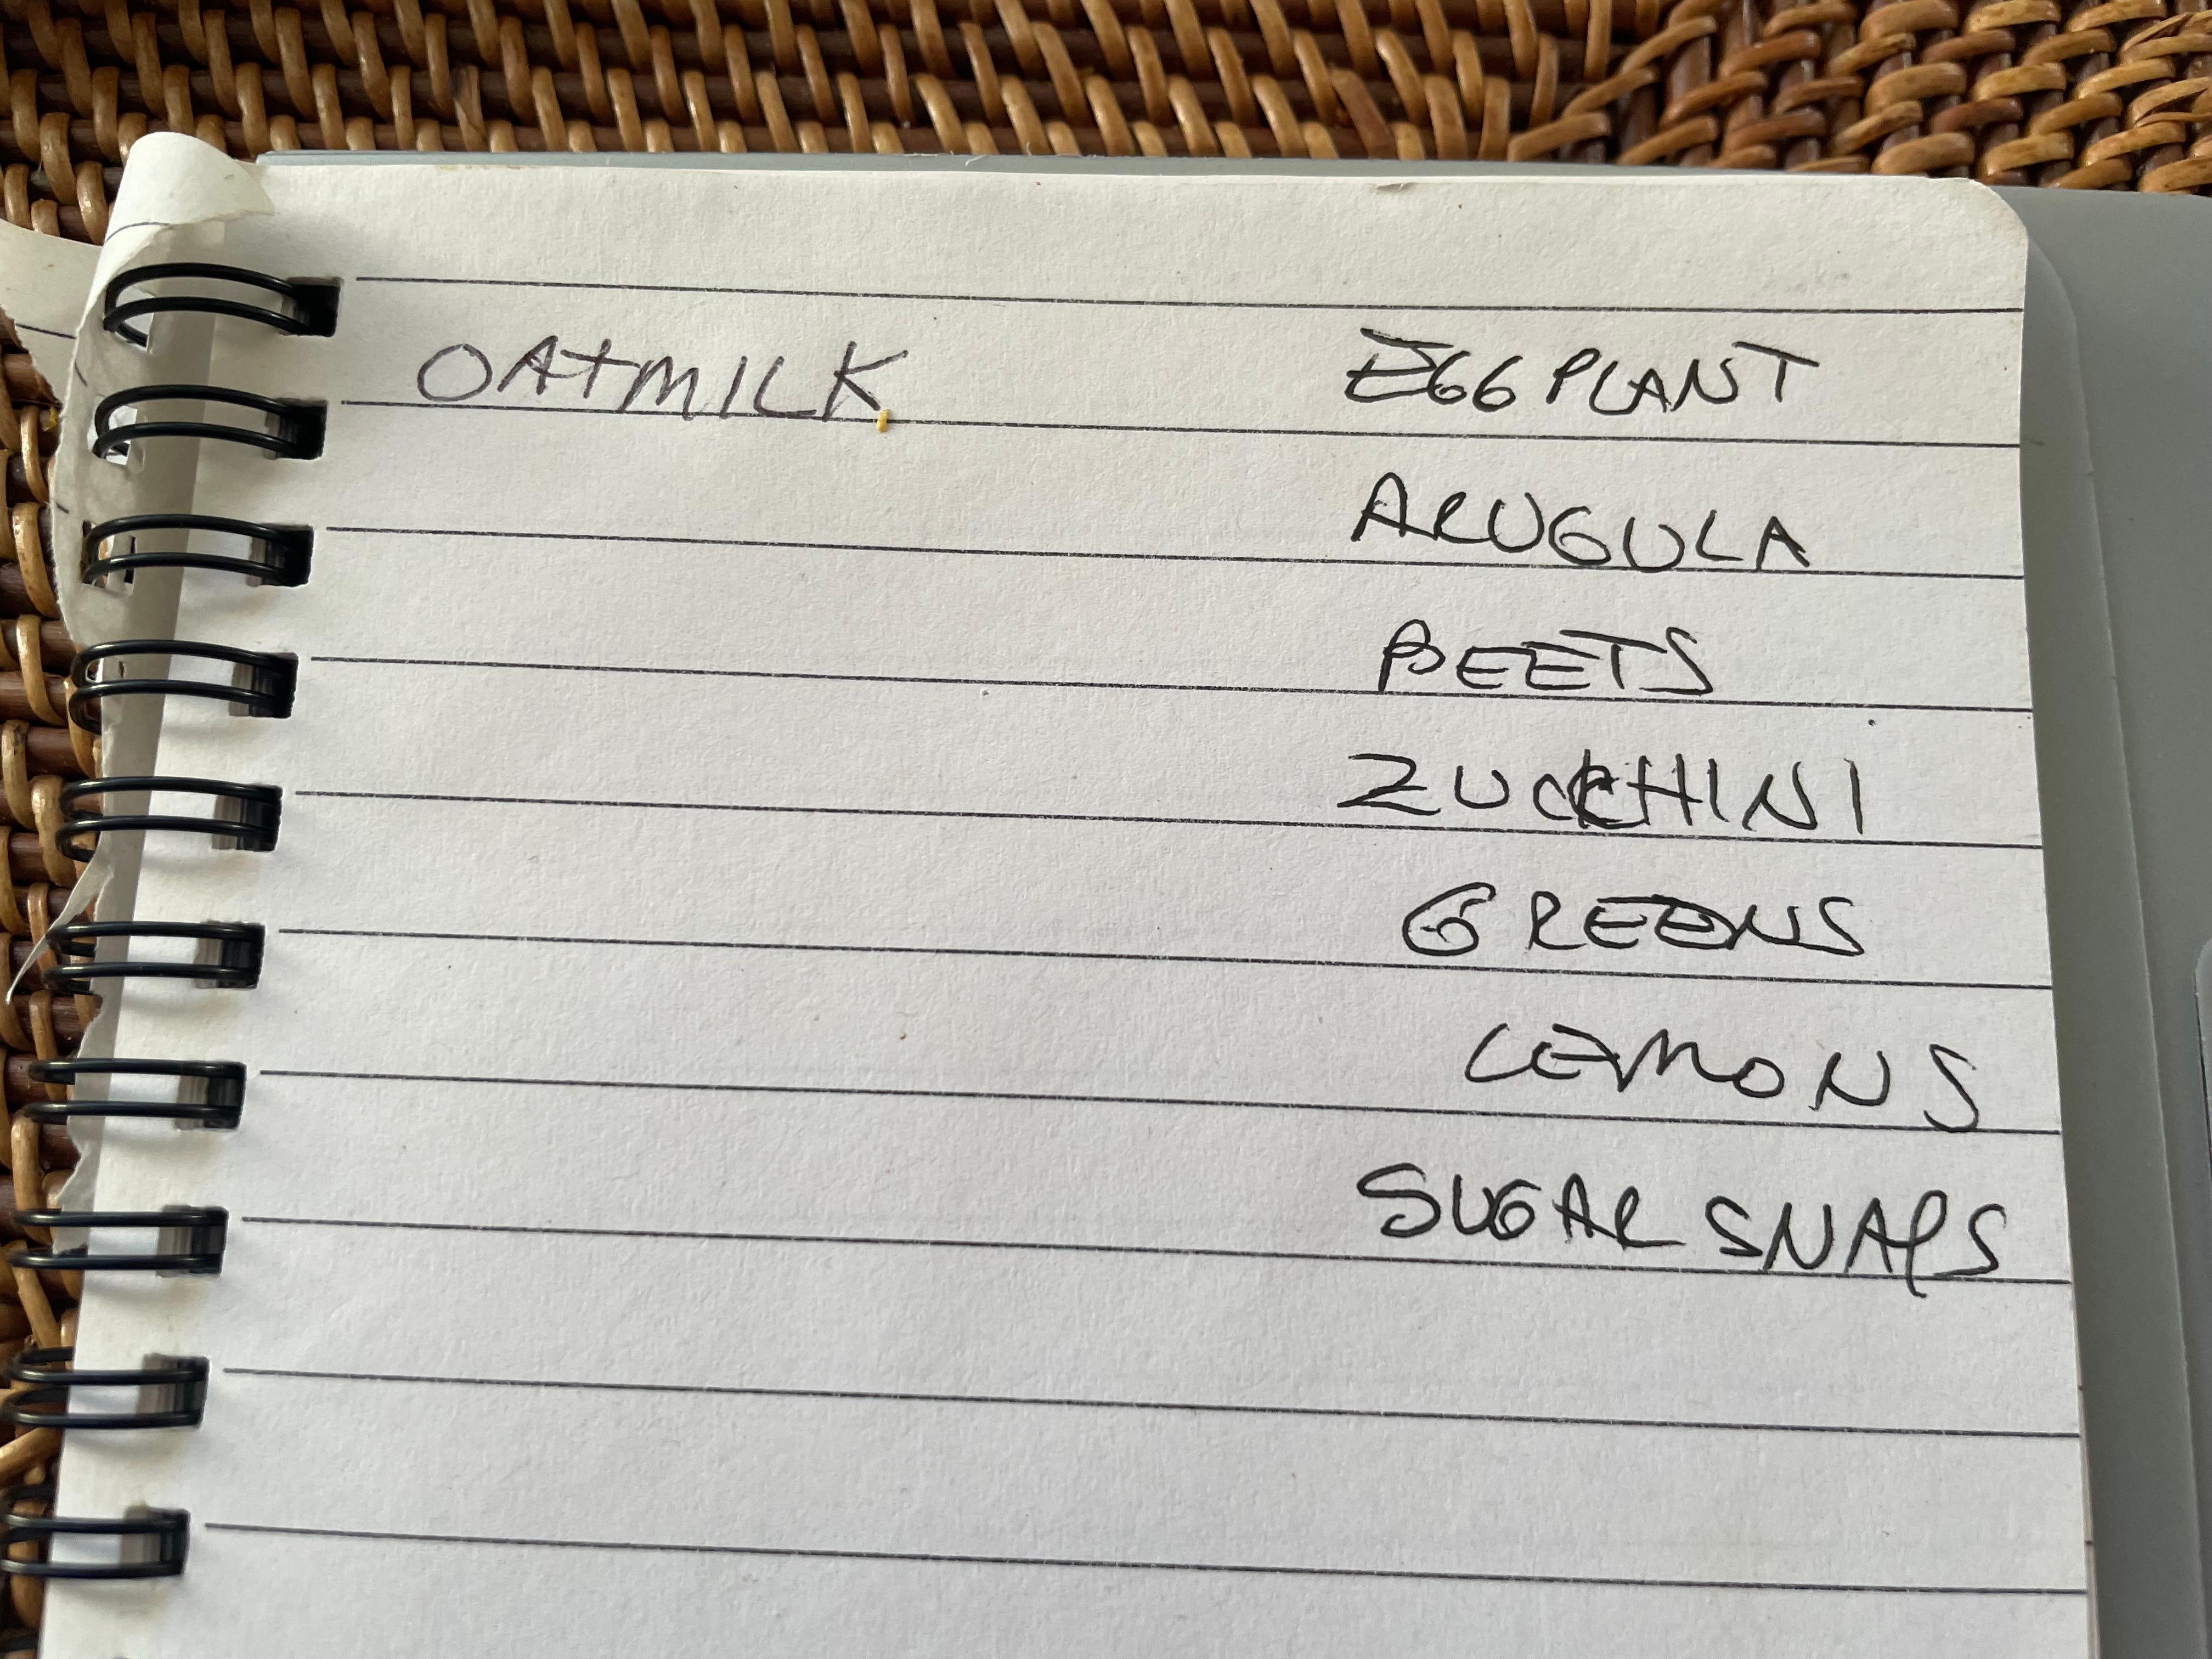 OATMILK
EGGPLANT
ARUGULA
BEETS
ZUCCHINI
GREENS
LEMONS
SUGAR SNAPS